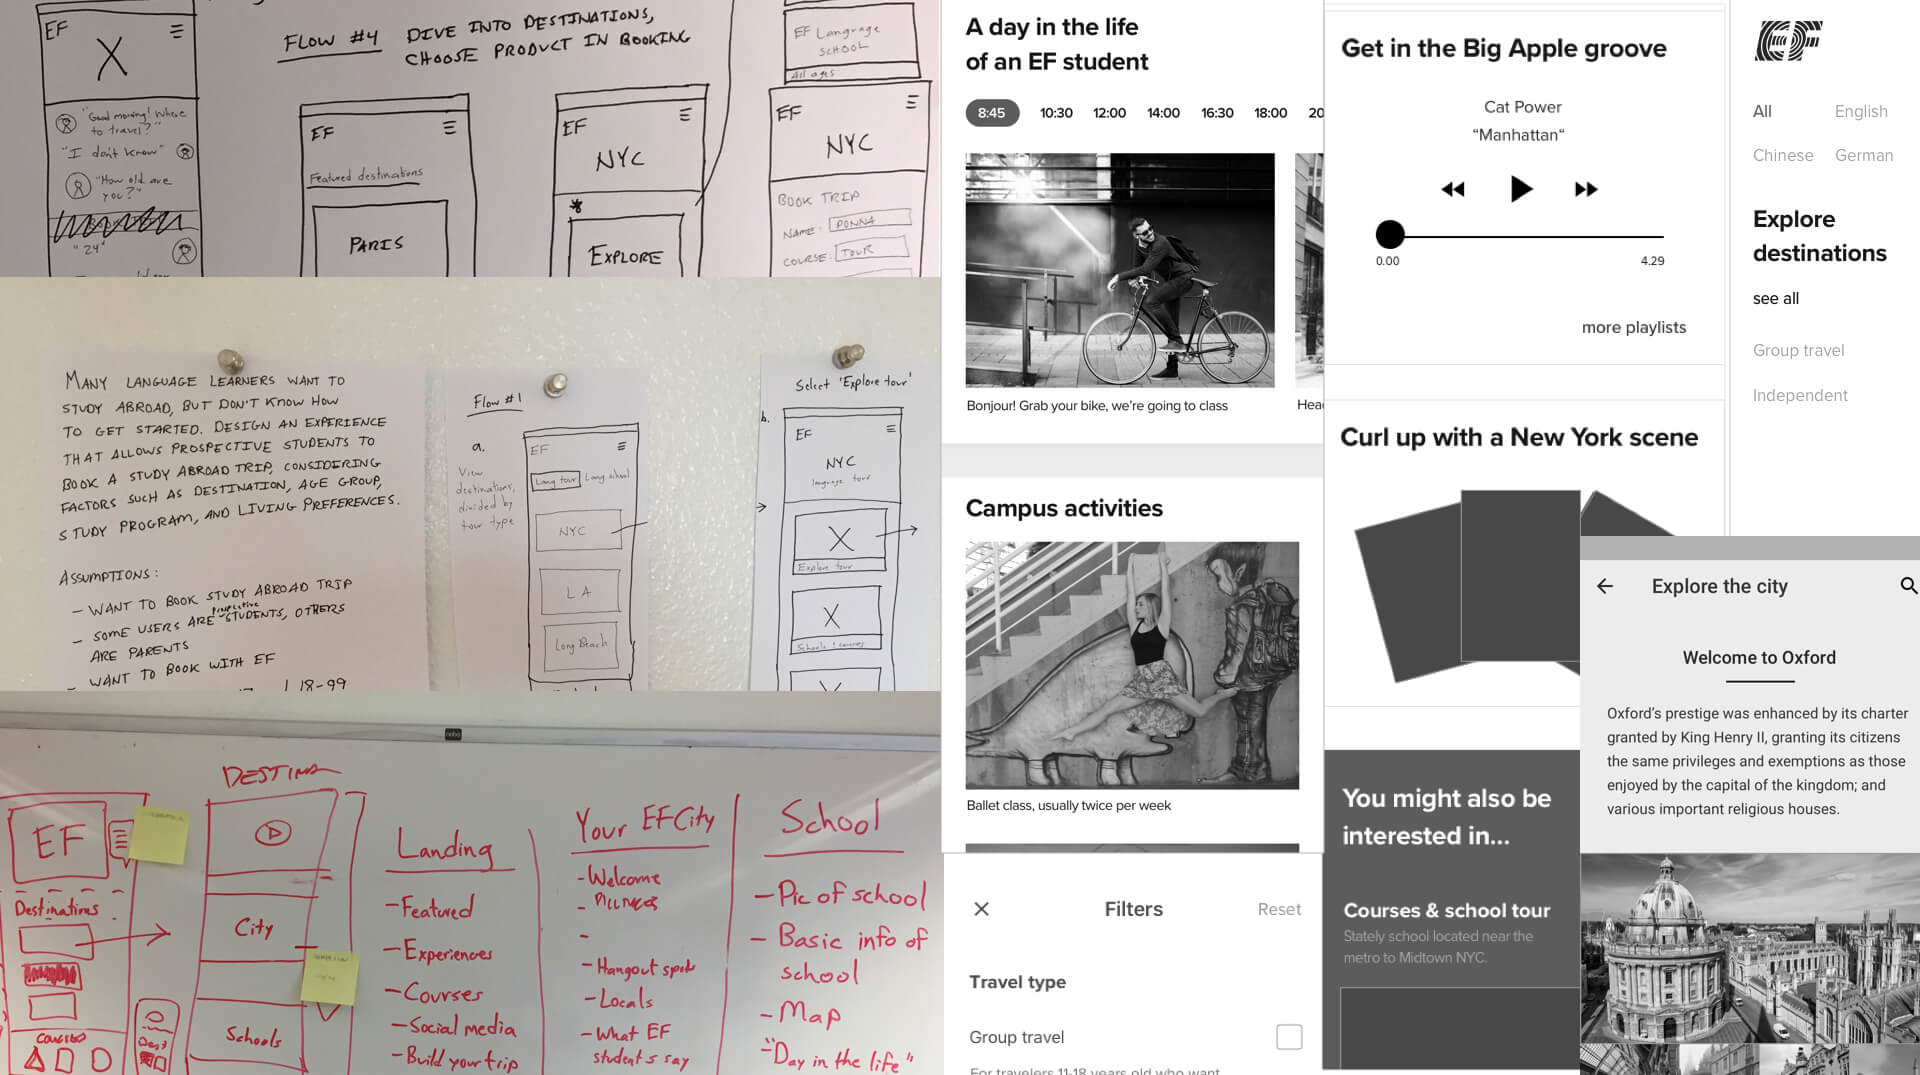 EF
X
"Good morning! Where
to travel?"
"I don't know"
"How old are
you?"
"24"
FLOW #4
DIVE INTO DESTINATIONS,
CHOOSE PRODUCT IN BOOKING
EF
Featured destinations
PARIS
EF
NYC
*
EXPLORE
EF Language
SCHOOL
All ages
EF
NYC
BOOK TRIP
NAME: DONNA
COURSE: TOUR
MANY LANGUAGE LEARNERS WANT TO
STUDY ABROAD, BUT DON'T KNOW HOW
TO GET STARTED. DESIGN AN EXPERIENCE
THAT ALLOWS PROSPECTIVE STUDENTS TO
BOOK A STUDY ABROAD TRIP, CONSIDERING
FACTORS SUCH AS DESTINATION, AGE GROUP,
STUDY PROGRAM, AND LIVING PREFERENCES.
ASSUMPTIONS:
- WANT TO BOOK STUDY ABROAD TRIP
- SOME USERS ARE prospective STUDENTS, OTHERS
ARE PARENTS
- WANT TO BOOK WITH EF
18-99
Flow #1
a.
View
destinations,
divided by
tour type
EF
Lang tour Lang school
NYC
LA
Long Beach
Select 'Explore tour'
b.
EF
NYC
language tour
X
Explore tour
X
Schools / courses
nobo
EF
Destinations
Courses
DESTINA
City
Schools
Dest
Landing
- Featured
- Experiences
- Courses
- Social media
- Build your trip
Your EF City
- Welcome
- Pictures
-
- Hangout spots
- Locals
- What EF
students say
School
- Pic of school
- Basic info of
school
- Map
- "Day in the life"
A day in the life
of an EF student
8:45 10:30 12:00 14:00 16:30 18:00 20
Bonjour! Grab your bike, we're going to class
Head
Campus activities
Ballet class, usually twice per week
Filters
Reset
Travel type
Group travel
For travelers 11-18 years old who want
Get in the Big Apple groove
Cat Power
“Manhattan“
0.00 4.29
more playlists
Curl up with a New York scene
You might also be
interested in...
Courses & school tour
Stately school located near the
metro to Midtown NYC.
EF
All English
Chinese German
Explore
destinations
see all
Group travel
Independent
Explore the city
Welcome to Oxford
Oxford’s prestige was enhanced by its charter
granted by King Henry II, granting its citizens
the same privileges and exemptions as those
enjoyed by the capital of the kingdom; and
various important religious houses.